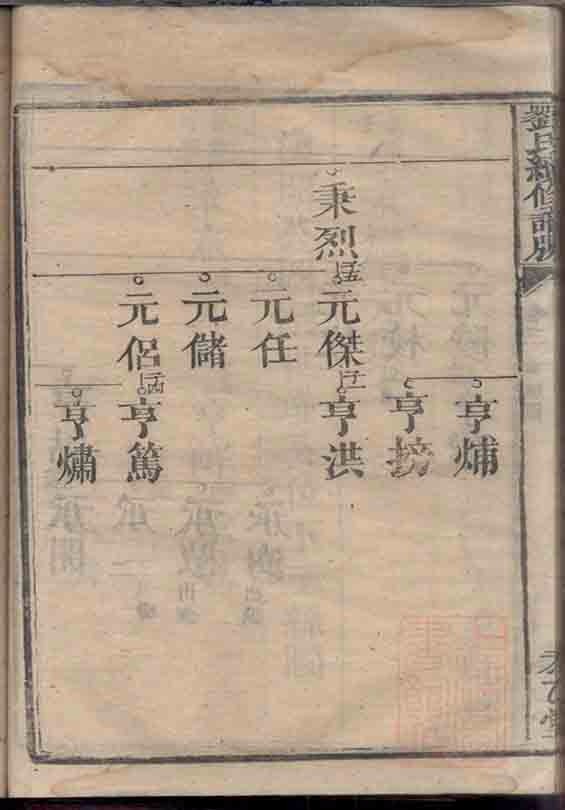 劉氏續修譜版
亨煏
亨榜
秉烈
元傑
亨洪
元任
元儲
元侶
亨篤
亨熽